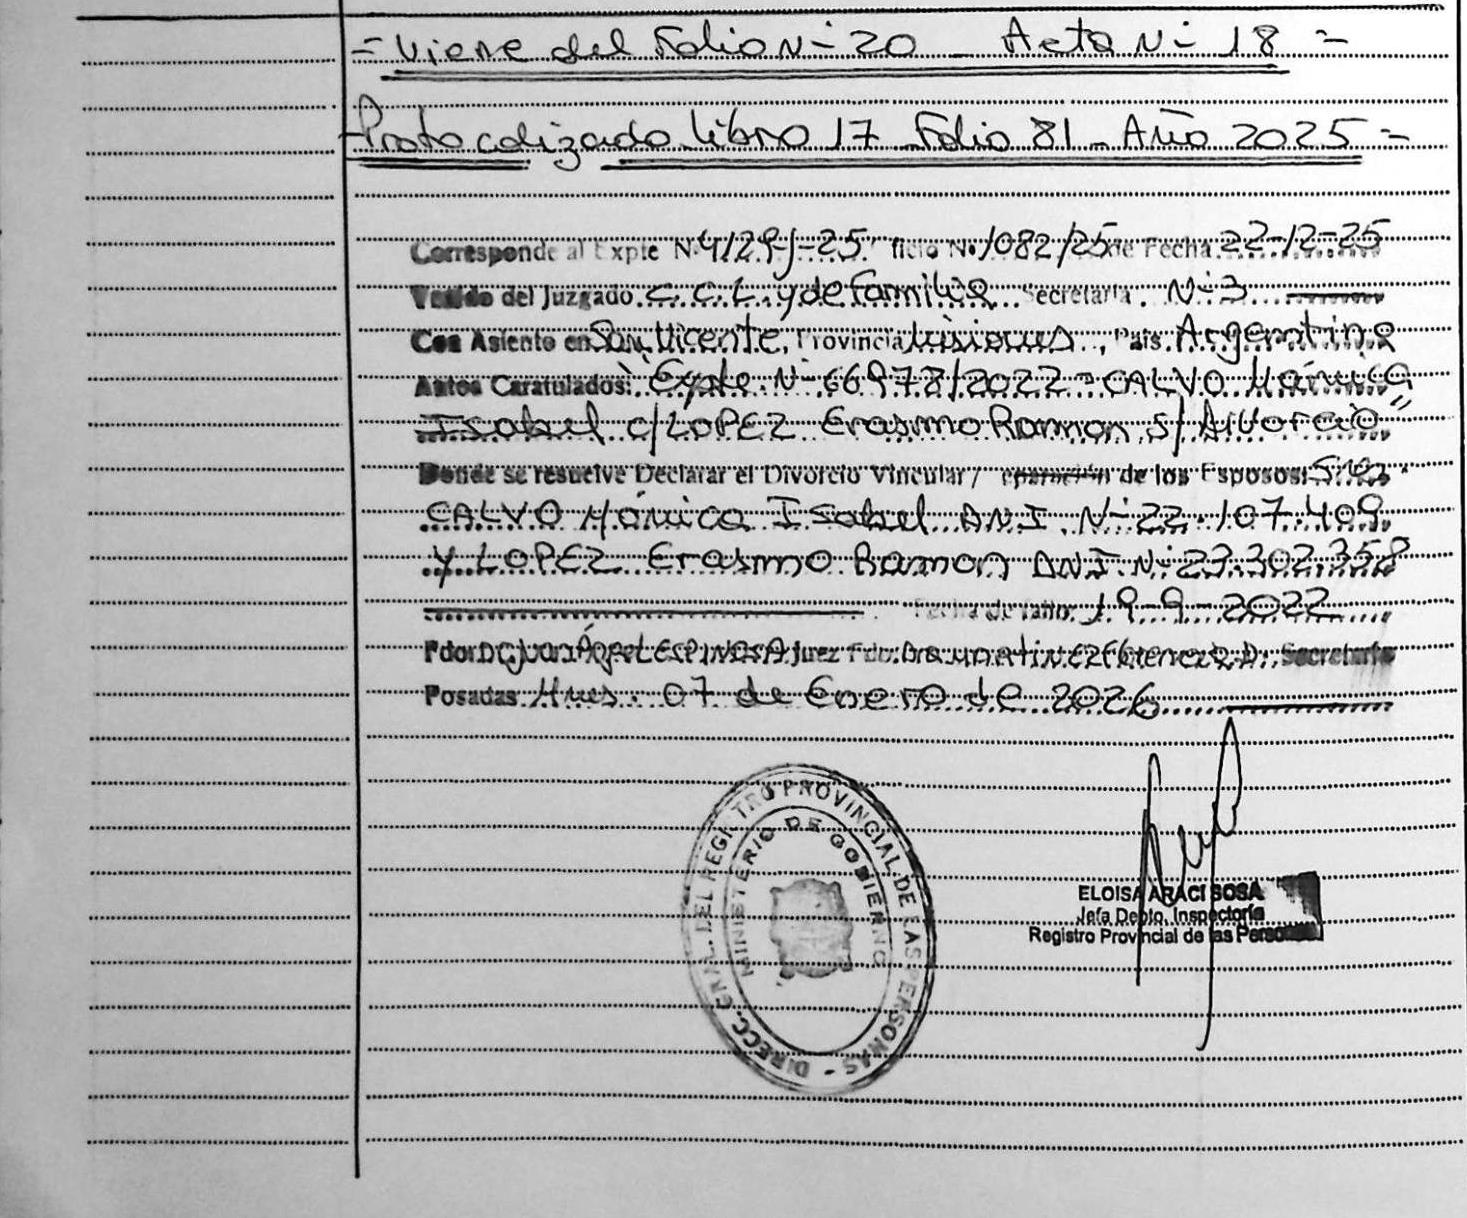 = Viene del Folio Nº 20 _ Acta Nº 18 =
- Protocolizado Libro 17 _ Folio 81 _ Año 2025 =
Corresponde al Expte N. 4129-J-25 ficio No 1082/25 de Fecha 22-12-25
Venido del Juzgado C. C. L. y de Familia Secretaría Nº 3
Con Asiento en San Vicente, Provincia Misiones, País Argentina
Autos Caratulados: Expte. Nº 66978/2022 - CALVO Mónica
Isabel c/LOPEZ Erasmo Ramon s/ Divorcio"
Donde se resuelve Declarar el Divorcio Vincular / eparación de los Esposos: Sres.
CALVO Mónica Isabel DNI Nº 22.107.409
y LOPEZ Erasmo Ramon DNI Nº 23.302.358
Fecha de fallo: 19-9-2022
Fdor: Dr Juan Ángel ESPINOSA Juez Fdo: Dra MARTINEZ D. Secretaria
Posadas Mnes. 07 de Enero de 2026
DIRECC. GRAL. DEL REGISTRO PROVINCIAL DE LAS PERSONAS -
MINISTERIO DE GOBIERNO
ELOISA ARACI SOSA
Jefa Depto. Inspectoría
Registro Provincial de las Personas